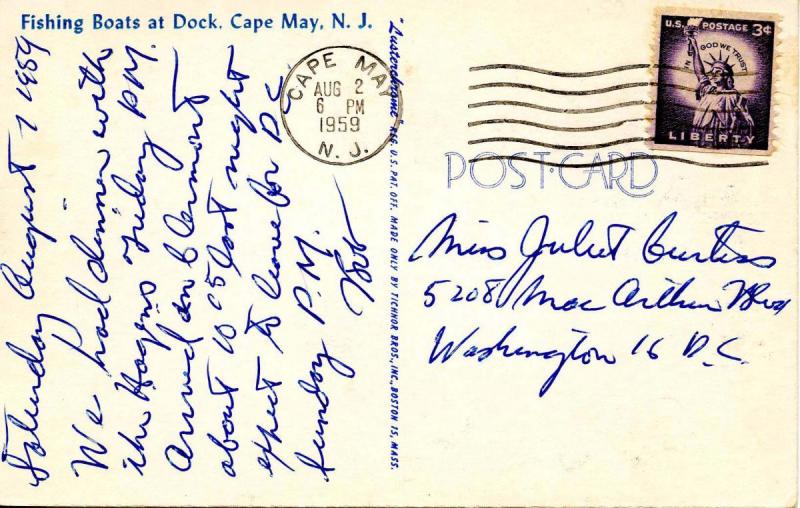 Fishing Boats at Dock, Cape May, N. J.
Saturday August 1 1959
We had dinner with
the Hagins Friday PM.
Arrived on
about 10 05 last night
expect to leave for D.C.
Sunday P.M.
Bob
"Lusterchrome" REG. U.S. PAT. OFF. MADE ONLY BY TICHNOR BROS., INC., BOSTON 15, MASS.
CAPE MAY
AUG 2
6 PM
1959
N. J.
U.S. POSTAGE 3¢
IN GOD WE TRUST
LIBERTY
POST-CARD
Miss Juliet Curtiss
5208 Mac Arthur Blvd
Washington 16 D.C.